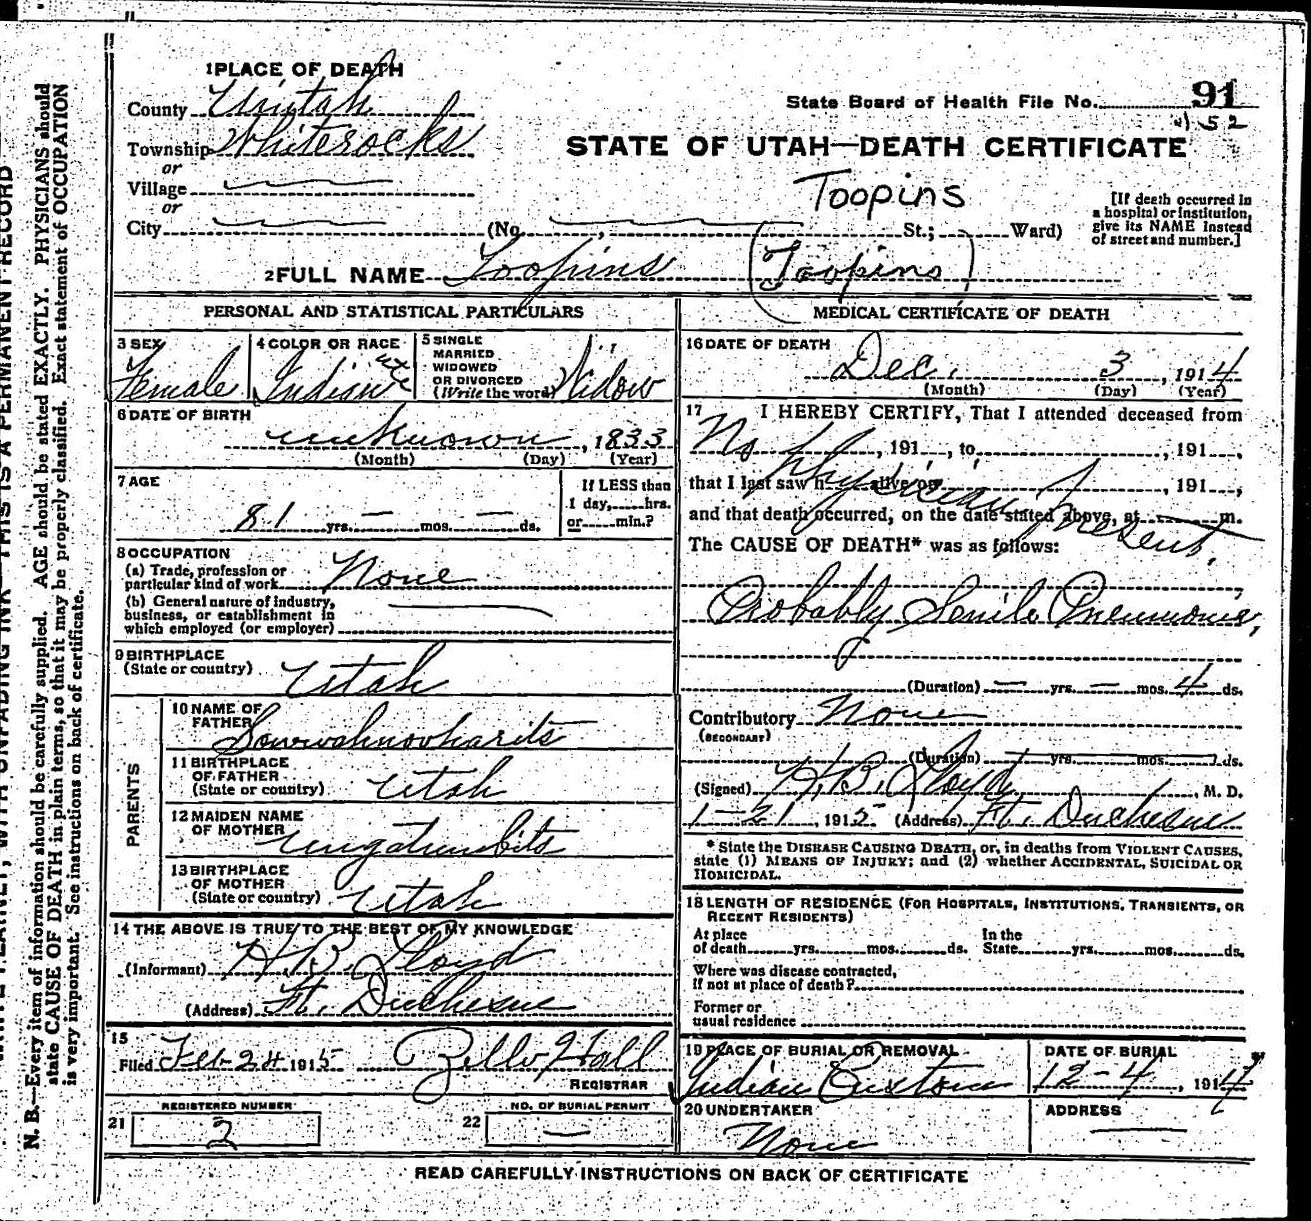 1 PLACE OF DEATH
County Uintah
State Board of Health File No. 91
52
Township Whiterocks
STATE OF UTAH—DEATH CERTIFICATE
or
Village
or
Toopins
[If death occurred in a hospital or institution, give its NAME instead of street and number.]
City (No. St.; Ward)
2 FULL NAME Toopins (Toopins)
PERSONAL AND STATISTICAL PARTICULARS
3 SEX Female
4 COLOR OR RACE Indian Ute
5 SINGLE MARRIED WIDOWED OR DIVORCED (Write the word) Widow
6 DATE OF BIRTH
unknown, 1833
(Month) (Day) (Year)
7 AGE
81 yrs. — mos. — ds.
If LESS than 1 day, hrs. or min.?
8 OCCUPATION
(a) Trade, profession or particular kind of work None
(b) General nature of industry, business, or establishment in which employed (or employer)
9 BIRTHPLACE
(State or country) Utah
PARENTS
10 NAME OF FATHER
11 BIRTHPLACE OF FATHER (State or country) Utah
12 MAIDEN NAME OF MOTHER
13 BIRTHPLACE OF MOTHER (State or country) Utah
14 THE ABOVE IS TRUE TO THE BEST OF MY KNOWLEDGE
(Informant) H.B. Lloyd
(Address) Ft. Duchesne
15
Filed Feb 24 1915 Hall
REGISTRAR
21 REGISTERED NUMBER 2
22 NO. OF BURIAL PERMIT —
MEDICAL CERTIFICATE OF DEATH
16 DATE OF DEATH
Dec. 3, 1914
(Month) (Day) (Year)
17 I HEREBY CERTIFY, That I attended deceased from
, 191 , to , 191 ,
that I last saw h alive on , 191 ,
and that death occurred, on the date stated above, at m.
No physician present.
The CAUSE OF DEATH* was as follows:
Probably Senile Pneumonia,
(Duration) — yrs. — mos. 4 ds.
Contributory None
(SECONDARY)
(Duration) yrs. mos. ds.
(Signed) H.B. Lloyd, M. D.
1-21, 1915 (Address) Ft. Duchesne
* State the DISEASE CAUSING DEATH, or, in deaths from VIOLENT CAUSES, state (1) MEANS OF INJURY; and (2) whether ACCIDENTAL, SUICIDAL OR HOMICIDAL.
18 LENGTH OF RESIDENCE (FOR HOSPITALS, INSTITUTIONS, TRANSIENTS, OR RECENT RESIDENTS)
At place of death yrs. mos. ds. In the State yrs. mos. ds.
Where was disease contracted, if not at place of death?
Former or usual residence
19 PLACE OF BURIAL OR REMOVAL
Indian Custom
DATE OF BURIAL
12-4, 1914
20 UNDERTAKER
None
ADDRESS
READ CAREFULLY INSTRUCTIONS ON BACK OF CERTIFICATE
N. B.—Every item of information should be carefully supplied. AGE should be stated EXACTLY. PHYSICIANS should
state CAUSE OF DEATH in plain terms, so that it may be properly classified. Exact statement of OCCUPATION
is very important. See instructions on back of certificate.
THIS IS A PERMANENT RECORD